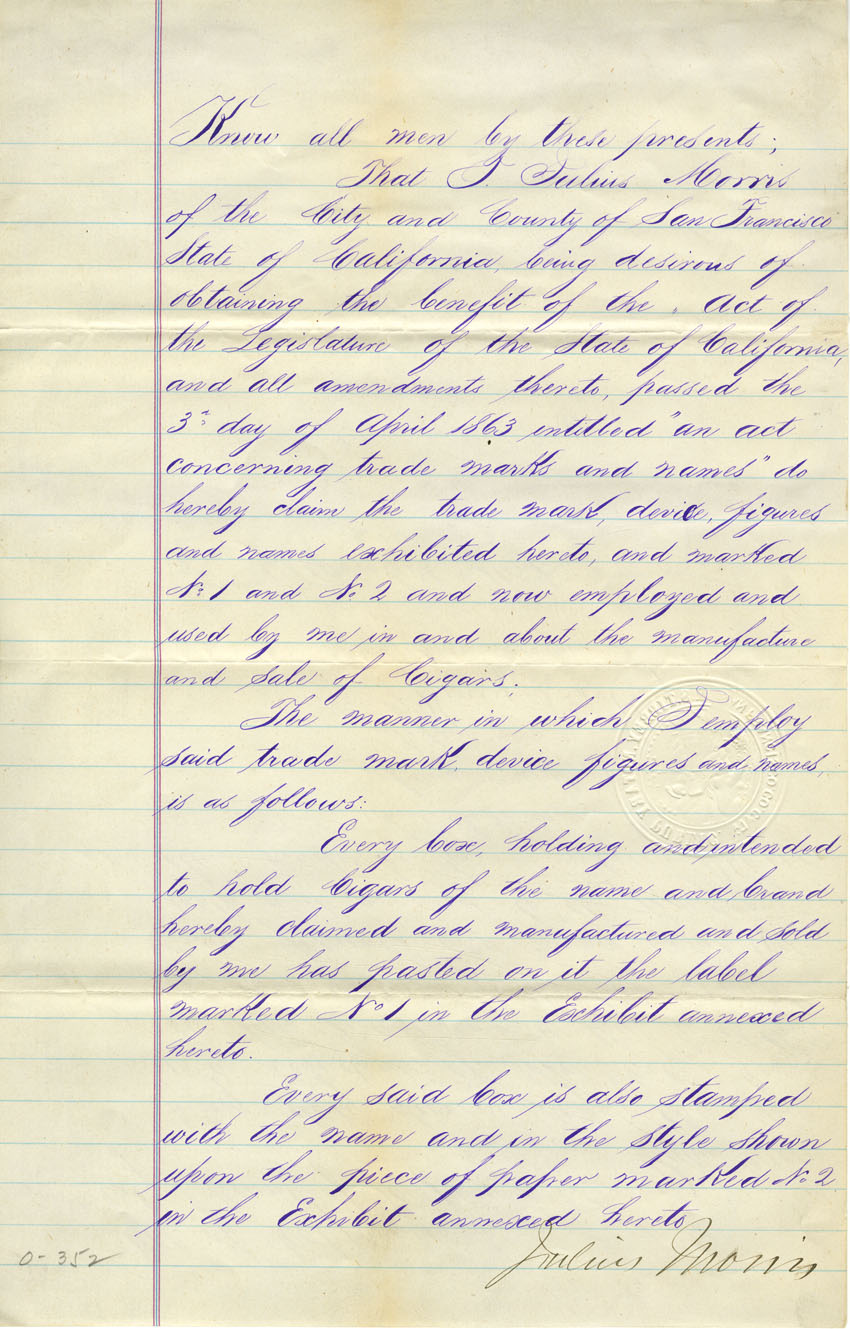 Know all men by these presents;
That I. Julius Morris
of the City and County of San Francisco
State of California, being desirous of
obtaining the benefit of the "Act of
the Legislature of the State of California,
and all amendments thereto, passed the
3rd day of April 1863 intitled "an act
concerning trade marks and names" do
hereby claim the trade mark, device, figures
and names exhibited hereto, and marked
No. 1 and No. 2 and now employed and
used by me in and about the manufacture
and sale of Cigars.
The manner in which I employ
said trade mark, device figures and names,
is as follows:
Every box, holding and intended
to hold Cigars of the name and brand
hereby claimed and manufactured and sold
by me has pasted on it the label
marked No 1 in the Exhibit annexed
hereto.
Every said box is also stamped
with the name and in the style shown
upon the piece of paper marked No. 2
in the Exhibit annexed hereto
Julius Morris
0-352